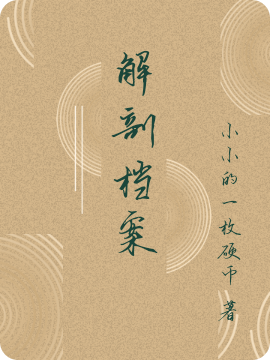 解剖档案
小小的一枚硕币 著